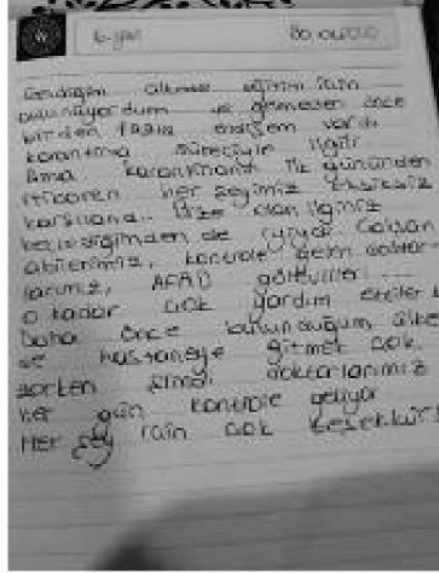 6. gün 30.04.2020
Geldiğim ülkede eğitim için
bulunuyordum ve gelmeden önce
birden fazla endişem vardı
karantina süreciyle ilgili.
Ama karantinanın ilk gününden
itibaren her şeyimiz eksiksiz
karşılandı. Bize olan ilginiz
beklediğimden de iyiydi. Çalışan
abilerimiz, kontrole gelen doktor-
larımız, AFAD görevlileri ...
o kadar çok yardım ettiler
Daha önce bulunduğum ülke
de hastaneye gitmek çok
zorken şimdi doktorlarımız
her gün kontrole geliyor
Her şey için çok teşekkürler